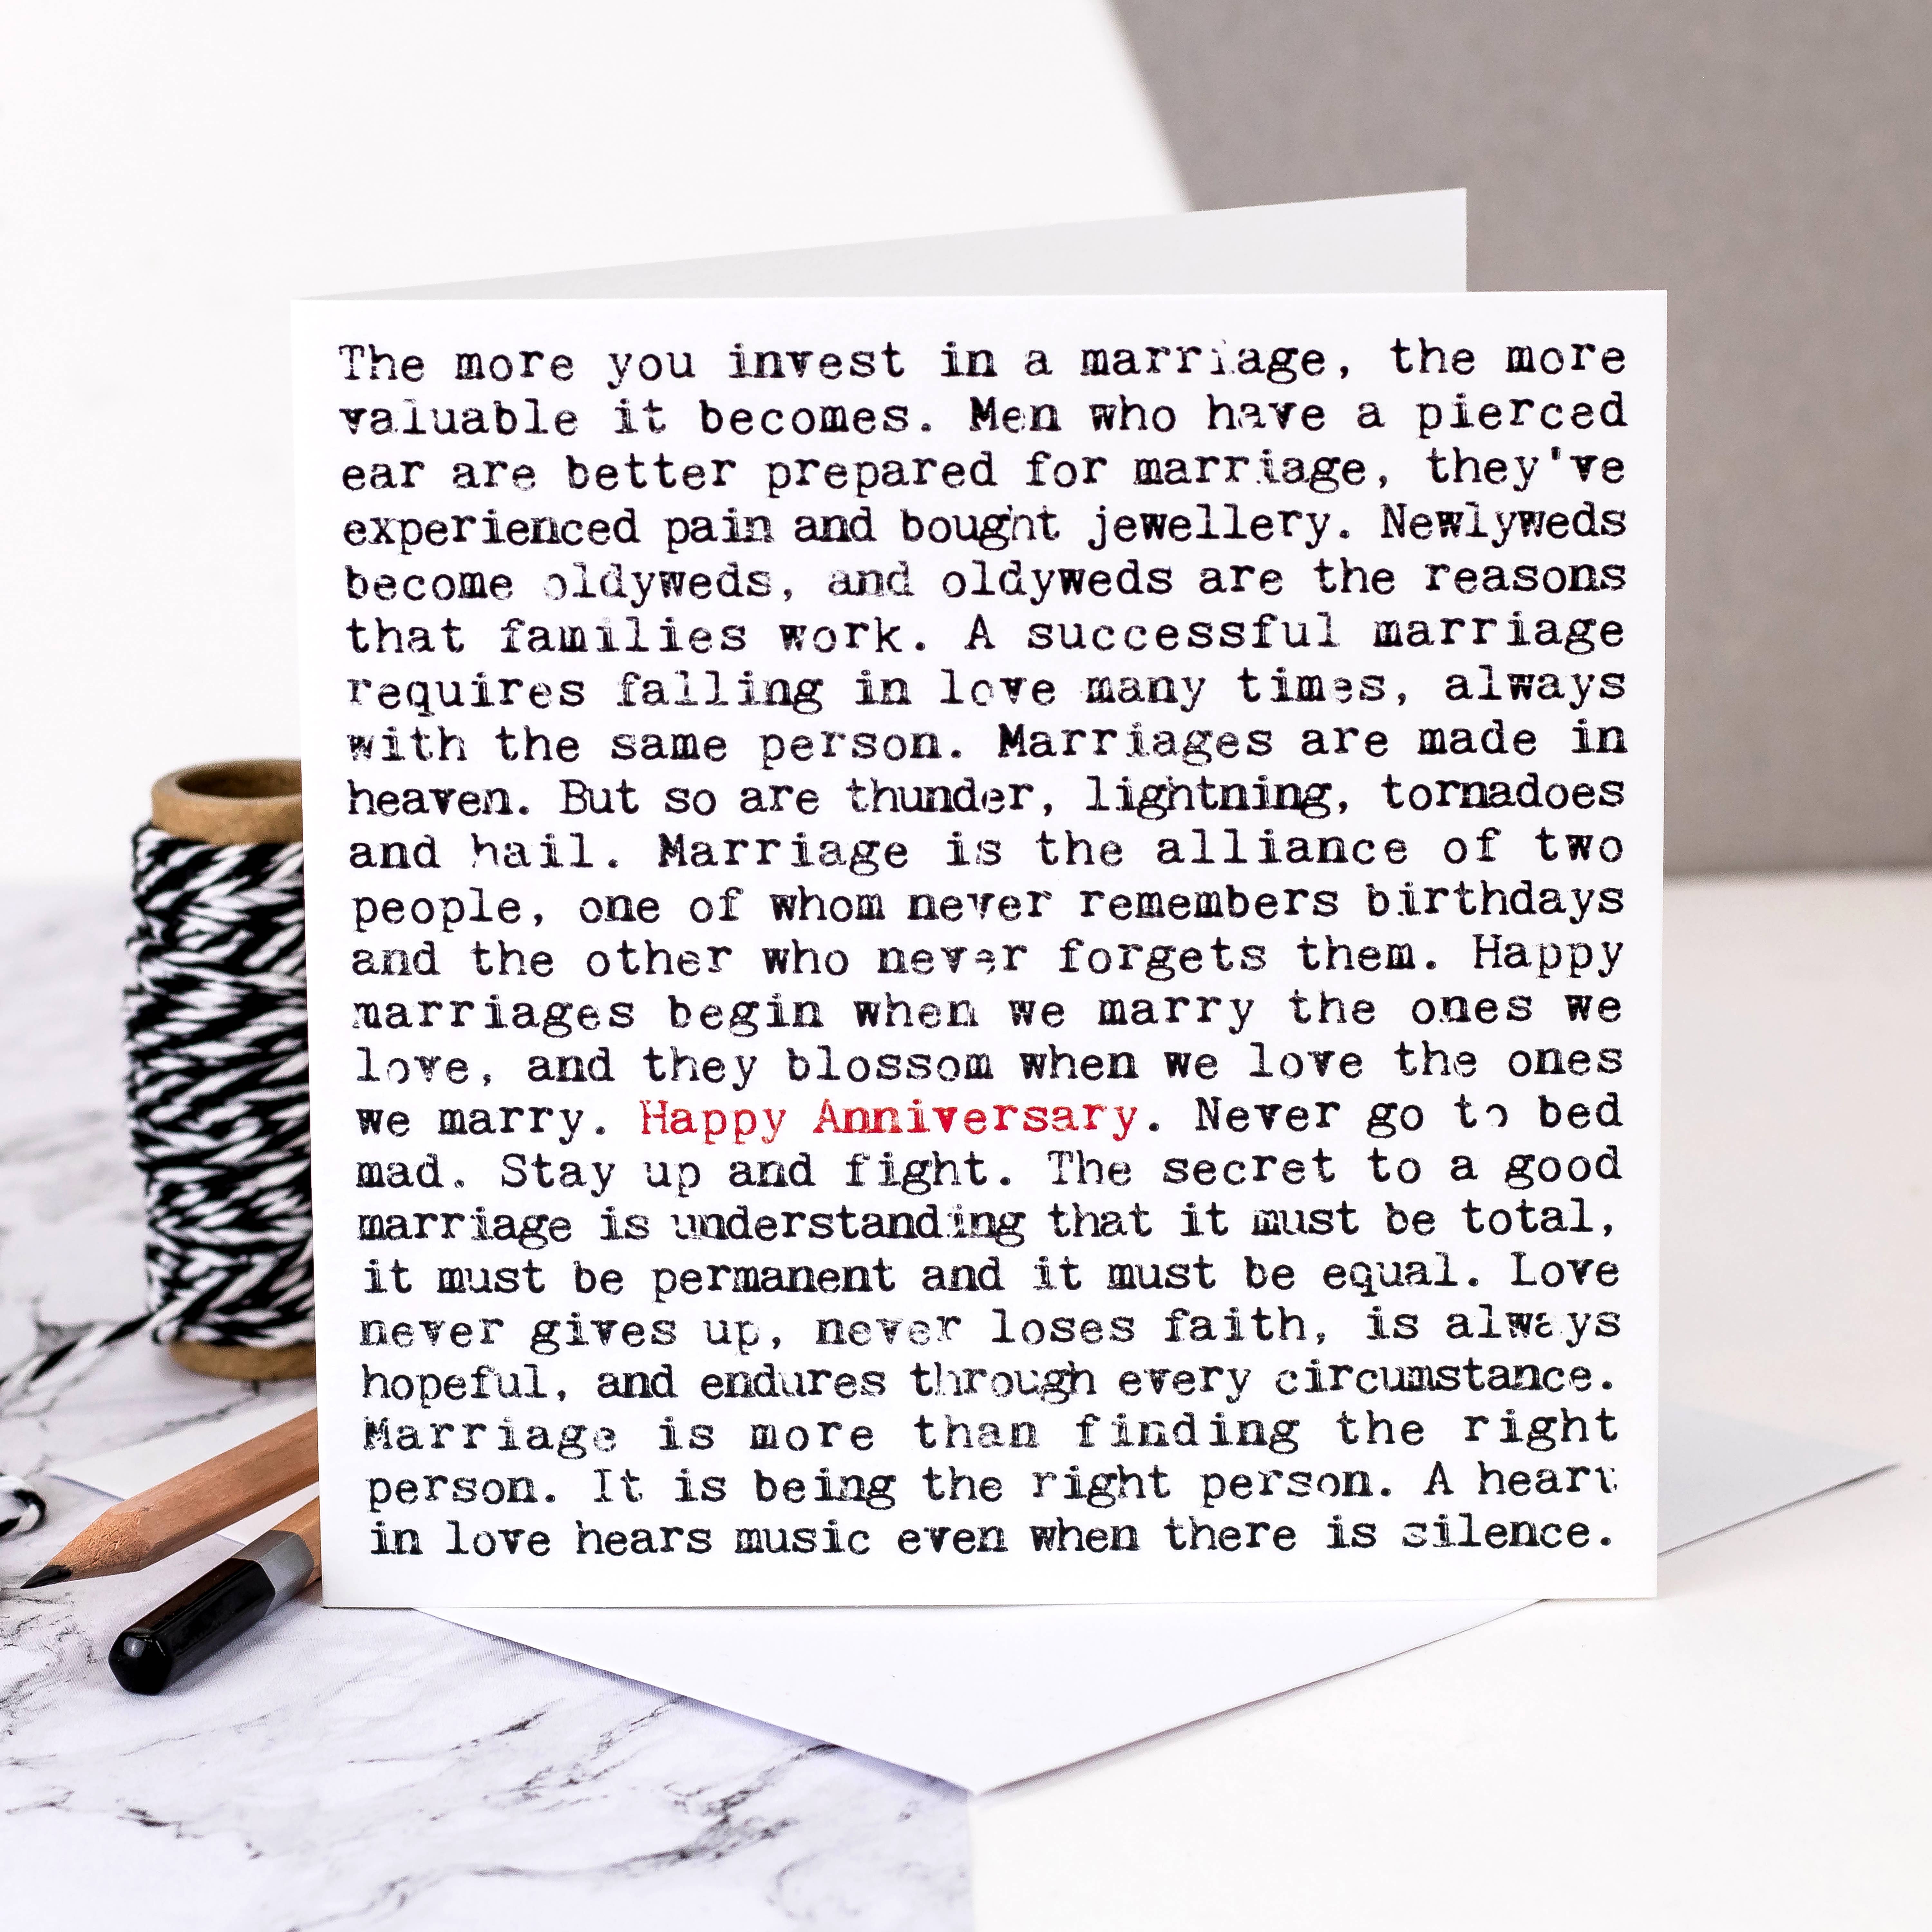 The more you invest in a marriage, the more
valuable it becomes. Men who have a pierced
ear are better prepared for marriage, they've
experienced pain and bought jewellery. Newlyweds
become oldyweds, and oldyweds are the reasons
that families work. A successful marriage
requires falling in love many times, always
with the same person. Marriages are made in
heaven. But so are thunder, lightning, tornadoes
and hail. Marriage is the alliance of two
people, one of whom never remembers birthdays
and the other who never forgets them. Happy
marriages begin when we marry the ones we
love, and they blossom when we love the ones
we marry. Happy Anniversary. Never go to bed
mad. Stay up and fight. The secret to a good
marriage is understanding that it must be total,
it must be permanent and it must be equal. Love
never gives up, never loses faith, is always
hopeful, and endures through every circumstance.
Marriage is more than finding the right
person. It is being the right person. A heart
in love hears music even when there is silence.